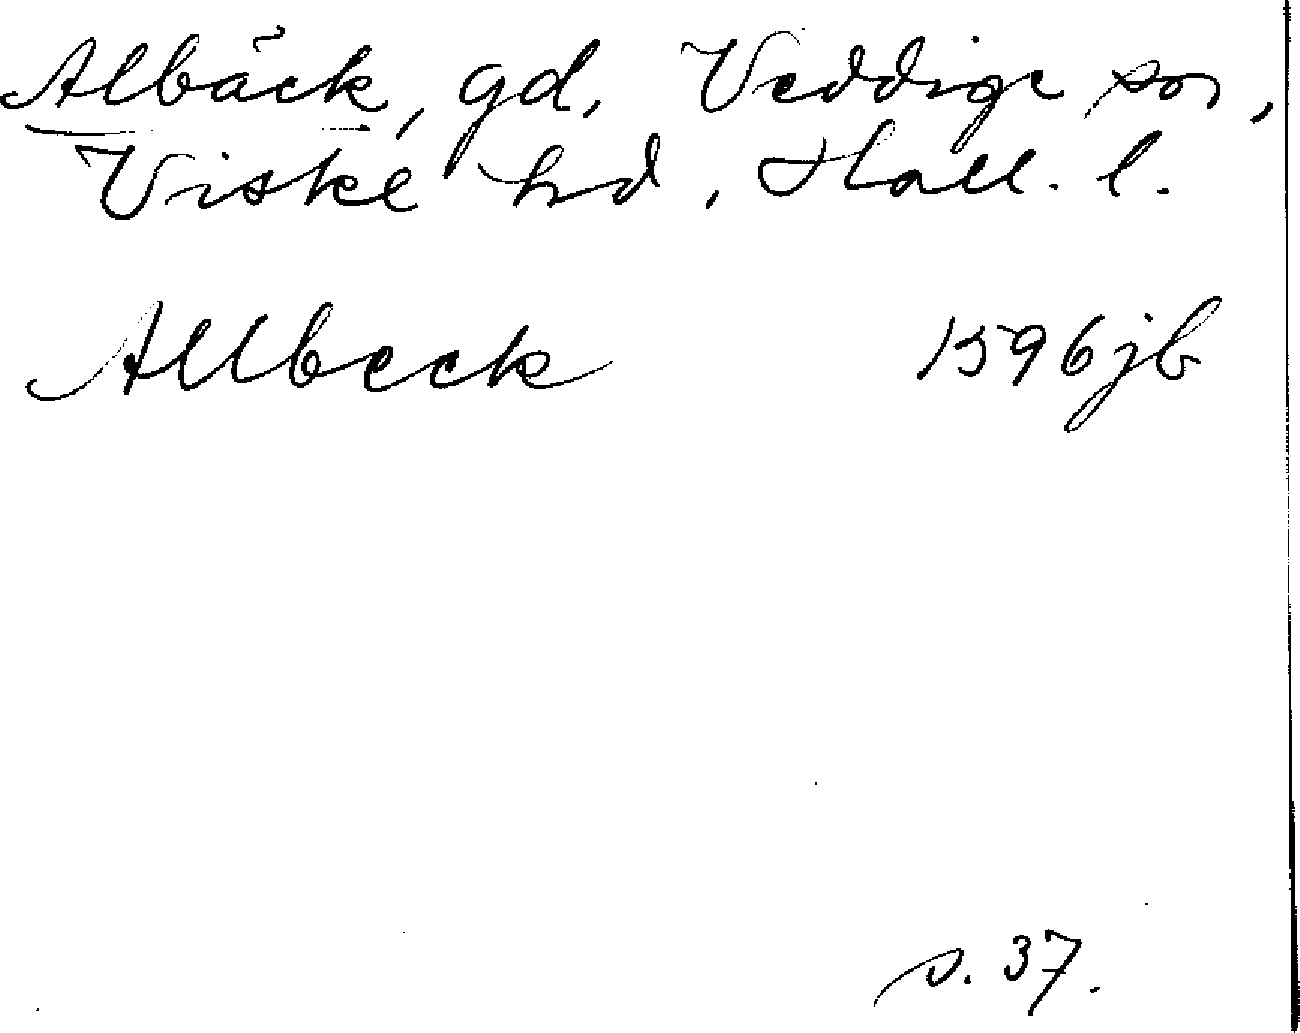 Albäck, gd, Veddige sn,
Viske hd, Hall. l.
Allbeck 1596 jb
s. 37.